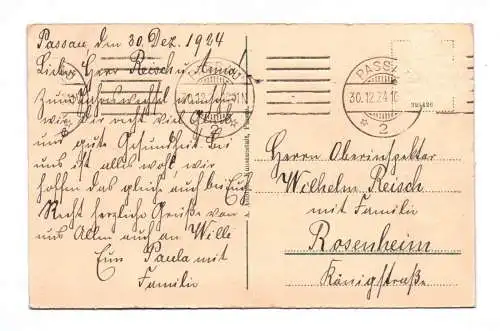 Passau, den 30. Dez. 1924
Liebe Herr Reisch u. Anna!
Zum Jahreswechsel wünschen
wir Dir recht viel Glück
und gute Gesundheit bei
uns ist alles wohl, wir
hoffen das gleiche auch bei Euch
Recht herzliche Grüße von
uns Allen auch an Willi
Eure Paula mit
Familie
PASSAU
30.12.24.
PASSAU
30.12.24.10
* 2
Herrn Oberinspektor
Wilhelm Reisch
mit Familie
Rosenheim
Königstraße